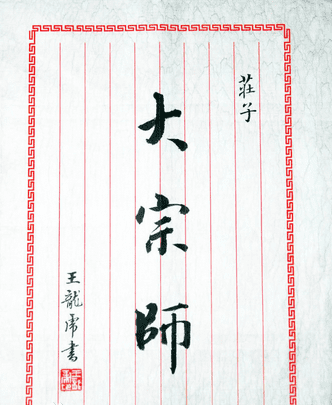 莊子
大宗師
王龍虎書